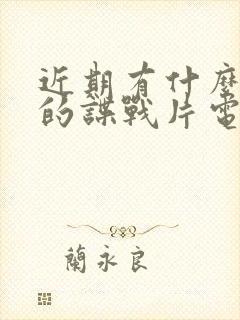 近期有什麼
的諜戰片電
蘭永良